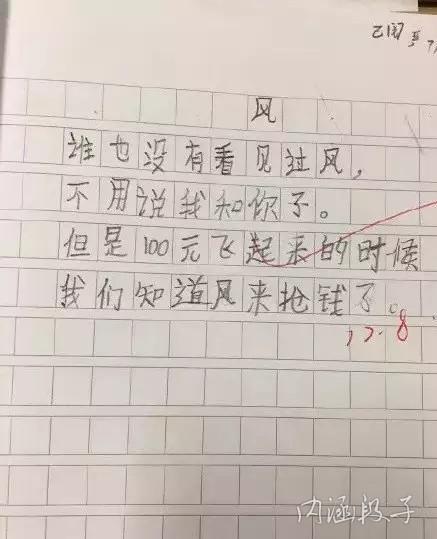 风
谁也没有看见过风，
不用说我和你了。
但是100元飞起来的时候
我们知道风来抢钱了。
内涵段子